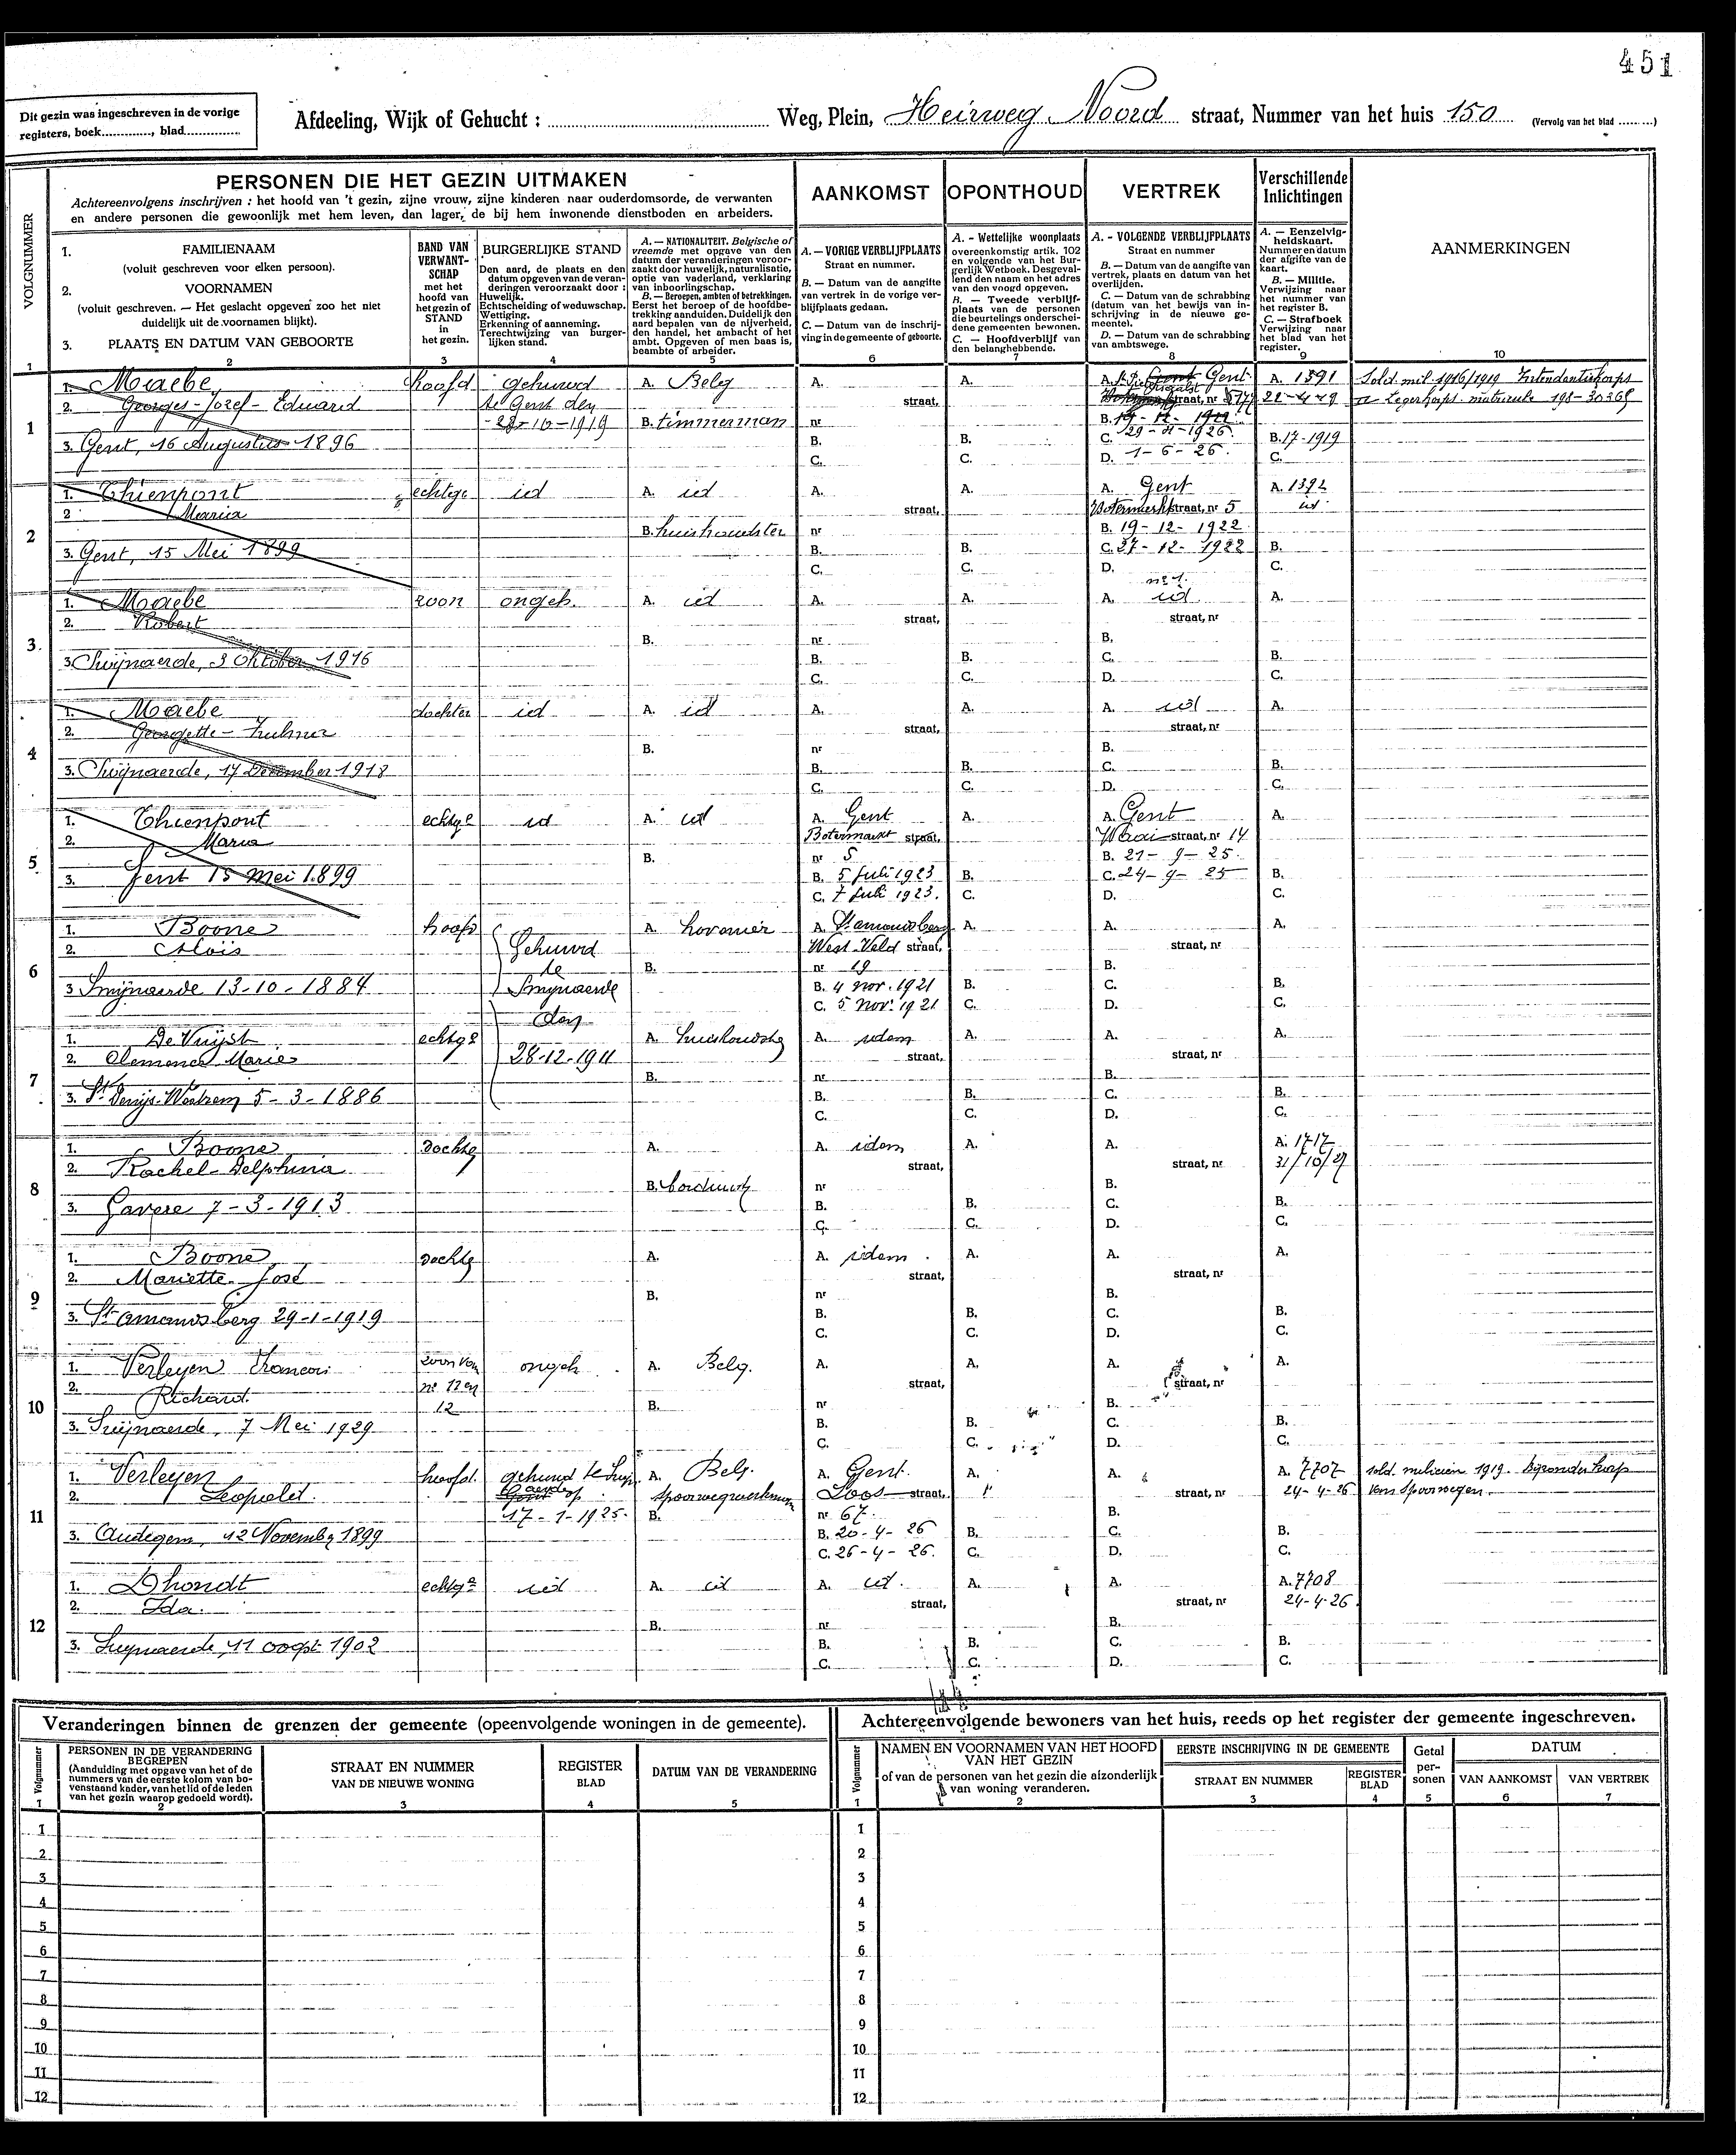 451
Dit gezin was ingeschreven in de vorige
registers, boek............, blad..............
Afdeeling, Wijk of Gehucht : Weg, Plein, Heirweg Noord straat, Nummer van het huis 150 (Vervolg van het blad ........)
VOLGNUMMER
PERSONEN DIE HET GEZIN UITMAKEN
Achtereenvolgens inschrijven : het hoofd van 't gezin, zijne vrouw, zijne kinderen naar ouderdomsorde, de verwanten
en andere personen die gewoonlijk met hem leven, dan lager, de bij hem inwonende dienstboden en arbeiders.
AANKOMST
OPONTHOUD
VERTREK
Verschillende
Inlichtingen
AANMERKINGEN
1. FAMILIENAAM
(voluit geschreven voor elken persoon).
2. VOORNAMEN
(voluit geschreven. — Het geslacht opgeven zoo het niet
duidelijk uit de voornamen blijkt).
3. PLAATS EN DATUM VAN GEBOORTE
BAND VAN
VERWANT-
SCHAP
met het
hoofd van
het gezin of
STAND
in
het gezin.
BURGERLIJKE STAND
Den aard, de plaats en den
datum opgeven van de veran-
deringen veroorzaakt door :
Huwelijk.
Echtscheiding of weduwschap.
Wettiging.
Erkenning of aanneming.
Terechtwijzing van burger-
lijken stand.
A. — NATIONALITEIT. Belgische of
vreemde met opgave van den
datum der veranderingen veroor-
zaakt door huwelijk, naturalisatie,
optie van vaderland, verklaring
van inboorlingschap.
B. — Beroepen, ambten of betrekkingen.
Eerst het beroep of de hoofdbe-
trekking aanduiden. Duidelijk den
aard bepalen van de nijverheid,
den handel, het ambacht of het
ambt. Opgeven of men baas is,
beambte of arbeider.
A. — VORIGE VERBLIJFPLAATS
Straat en nummer.
B. — Datum van de aangifte
van vertrek in de vorige ver-
blijfplaats gedaan.
C. — Datum van de inschrij-
ving in de gemeente of geboorte.
A. - Wettelijke woonplaats
overeenkomstig artik. 102
en volgende van het Bur-
gerlijk Wetboek. Desgeval-
lend den naam en het adres
van den voogd opgeven.
B. — Tweede verblijf-
plaats van de personen
die beurtelings onderschei-
dene gemeenten bewonen.
C. — Hoofdverblijf van
den belanghebbende.
A. - VOLGENDE VERBLIJFPLAATS
Straat en nummer
B. — Datum van de aangifte van
vertrek, plaats en datum van het
overlijden.
C. — Datum van de schrabbing
(datum van het bewijs van in-
schrijving in de nieuwe ge-
meente).
D. — Datum van de schrabbing
van ambtswege.
A. — Eenzelvig-
heidskaart.
Nummer en datum
der afgifte van de
kaart.
B. — Militie.
Verwijzing naar
het nummer van
het register B.
C. — Strafboek
Verwijzing naar
het blad van het
register.
1 2 3 4 5 6 7 8 9 10
1
1. Maebe hoofd gehuwd A. Belg A. A. A. Gent A. 1391 Sold. mil 1916/1919
2. Georges-Jozef-Eduard te Gent den straat, straat, nr 22-4-29
-28-10-1919 B. timmerman nr B. 19-12-1922
3. Gent, 16 Augustus 1896 B. B. C. 29-4-1926. B. 17-1919
C. C. D. 1-6-26. C.
2
1. Thienpont echtge id A. id A. A. A. Gent A. 1392
2. Maria straat, Botermerkt straat, nr 5 id
B. huishoudster nr B. 19-12-1922
3. Gent, 15 Mei 1899 B. B. C. 27-12-1922 B.
C. C. D. C.
nr 1.
3
1. Maebe zoon ongeh. A. id A. A. A. id A.
2. Robert straat, straat, nr
B. nr B.
3. Swijnaerde, 3 Oktober 1916 B. B. C. B.
C. C. D. C.
4
1. Maebe dochter id A. id A. A. A. id A.
2. Georgette- straat, straat, nr
B. nr B.
3. Swijnaerde, 17 December 1918 B. B. C. B.
C. C. D. C.
5
1. Thienpont echtge id A. id A. Gent A. A. Gent A.
2. Maria Botermarkt straat, straat, nr 14
B. nr 5 B. 21-9-25.
3. Gent 15 Mei 1899 B. 5 Juli 1923 B. C. 24-9-25 B.
C. 7 Juli 1923. C. D. C.
6
1. Boone hoofd Gehuwd A. hovenier A. St amandsberg A. A. A.
2. Aloïs te West-Veld straat, straat, nr
Swijnaerde B. nr 19 B.
3 Swijnaerde 13-10-1884 B. 4 nov. 1921 B. C. B.
den C. 5 nov. 1921 C. D. C.
7
1. De Vuijst echtge 28-12-1911 A. huishoudstg A. idem A. A. A.
2. Clemence Marie straat, straat, nr
B. nr B.
3. St Denijs-Westrem 5-3-1886 B. B. C. B.
C. C. D. C.
8
1. Boone dochtg A. A. idem A. A. A. 1717
2. Rachel-Delphina straat, straat, nr 31/10/27
B. nr B.
3. Gavere 7-3-1913 B. B. C. B.
C. C. D. C.
9
1. Boone dochtg A. A. idem A. A. A.
2. Mariette José straat, straat, nr
B. nr B.
3. St amandsberg 29-1-1919 B. B. C. B.
C. C. D. C.
10
1. Verleyen zoon van ongeh. A. Belg. A. A. A. A.
2. Richard. nr 11 en straat, straat, nr
12 B. nr B.
3. Swijnaerde, 7 Mei 1929 B. B. C. B.
C. C. D. C.
11
1. Verleyen hoofd. gehuwd te A. Belg. A. Gent. A. A. A. 7707 sold. milicien 1919. bijzonder korps
2. Leopold. op spoorwegwerkman Loos straat, straat, nr 24-4-26 van spoorwegen.
17-1-1925. B. nr 67. B.
3. Audegem, 12 Novembr 1899 B. 20-4-26 B. C. B.
C. 26-4-26. C. D. C.
12
1. Dhondt echtge id A. id A. id. A. A. A. 7708
2. Ida. straat, straat, nr 24-4-26.
B. nr B.
3. Swijnaerde, 11 oogst 1902 B. B. C. B.
C. C. D. C.
Veranderingen binnen de grenzen der gemeente (opeenvolgende woningen in de gemeente).
Volgnummer
PERSONEN IN DE VERANDERING
BEGREPEN
(Aanduiding met opgave van het of de
nummers van de eerste kolom van bo-
venstaand kader, van het lid of de leden
van het gezin waarop gedoeld wordt).
STRAAT EN NUMMER
VAN DE NIEUWE WONING
REGISTER
BLAD
DATUM VAN DE VERANDERING
1 2 3 4 5
1
2
3
4
5
6
7
8
9
10
11
12
Achtereenvolgende bewoners van het huis, reeds op het register der gemeente ingeschreven.
Volgnummer
NAMEN EN VOORNAMEN VAN HET HOOFD
VAN HET GEZIN
of van de personen van het gezin die afzonderlijk
van woning veranderen.
EERSTE INSCHRIJVING IN DE GEMEENTE
STRAAT EN NUMMER
REGISTER
BLAD
Getal
per-
sonen
DATUM
VAN AANKOMST
VAN VERTREK
1 2 3 4 5 6 7
1
2
3
4
5
6
7
8
9
10
11
12